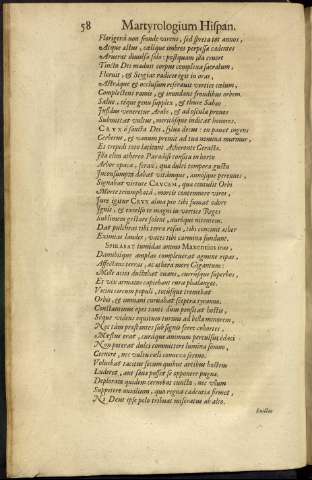 58 Martyrologium Hispan.
Florigerâ non fronde virens, sed spreta tot annos,
Atque altus, cælique imbres perpessa cadentes
Aruerat diuulsa solo: postquam ista cruore
Tincta Dei maduit corpus complexa sacratum,
Floruit, & Stygias radices egit in oras,
Astráque & occlusum reserauit vertice cœlum,
Complectens ramis, & inundans frondibus orbem.
Salue, téque genu supplex, & thure Sabæo
Insidum veneretur Arabs, & ad oscula pronos
Submittat vultus, meritósque indicat honores.
CRVX sancta Dei, silua
Cerberus, & manum
Et trepidi toto latitant Acheronte
Ista olim athereo Paradisi consita in horto
Arbor opaca, ferax, quæ dulci tempora gustu
Inconsumpta dabat vitámque, annósque perennes:
Signabat virtute CRVCEM, quæ contulit Orbi
Morte triumphatâ, mortis contemnere vires,
Iure igitur CRVX alma pio tibi fumat odore
Ignis, & excelso te magni in vertice Reges
Sublimem gestare solent, aurique nitentem.
Dat pulchras tibi terra rosas, tibi concinit æther
Eximias laudes, vates tibi carmina fundunt.
SPIRABAT tumidas animis MAXENTIVS iras,
Damnósque amplas compleuerat agmine ripas,
Affectans terras, ac æthera more Gigantum:
Mille acies ductabat ouans, currúsque superbos,
Et vix armatas capiebant rura phalanges.
Vicini terrore populi, totúsque tremebat
Orbis, & omnium curuabat sceptra tyrannus.
Constantinus opes tanti dum pensitat hostis,
Séque videns equitum turmis ad bella minorem,
Nec tàm prestantes sub signis ferre cohortes,
Mœstus erat, curáque animum percussus edaci
Non poterat dulci committere lumina somno,
Cernere, nec vultu cœli conuexa sereno.
Voluebat tacitus secum quibus artibus hostem
Luderet, aut sæuæ posset se opponere pugnæ.
Deplorata quidem cernebat cuncta, nec vllum
Suppetere auxilium, quo regna cadentia firmet,
Ni Deus ipse polo tribuat miseratus ab alto.
Inclita